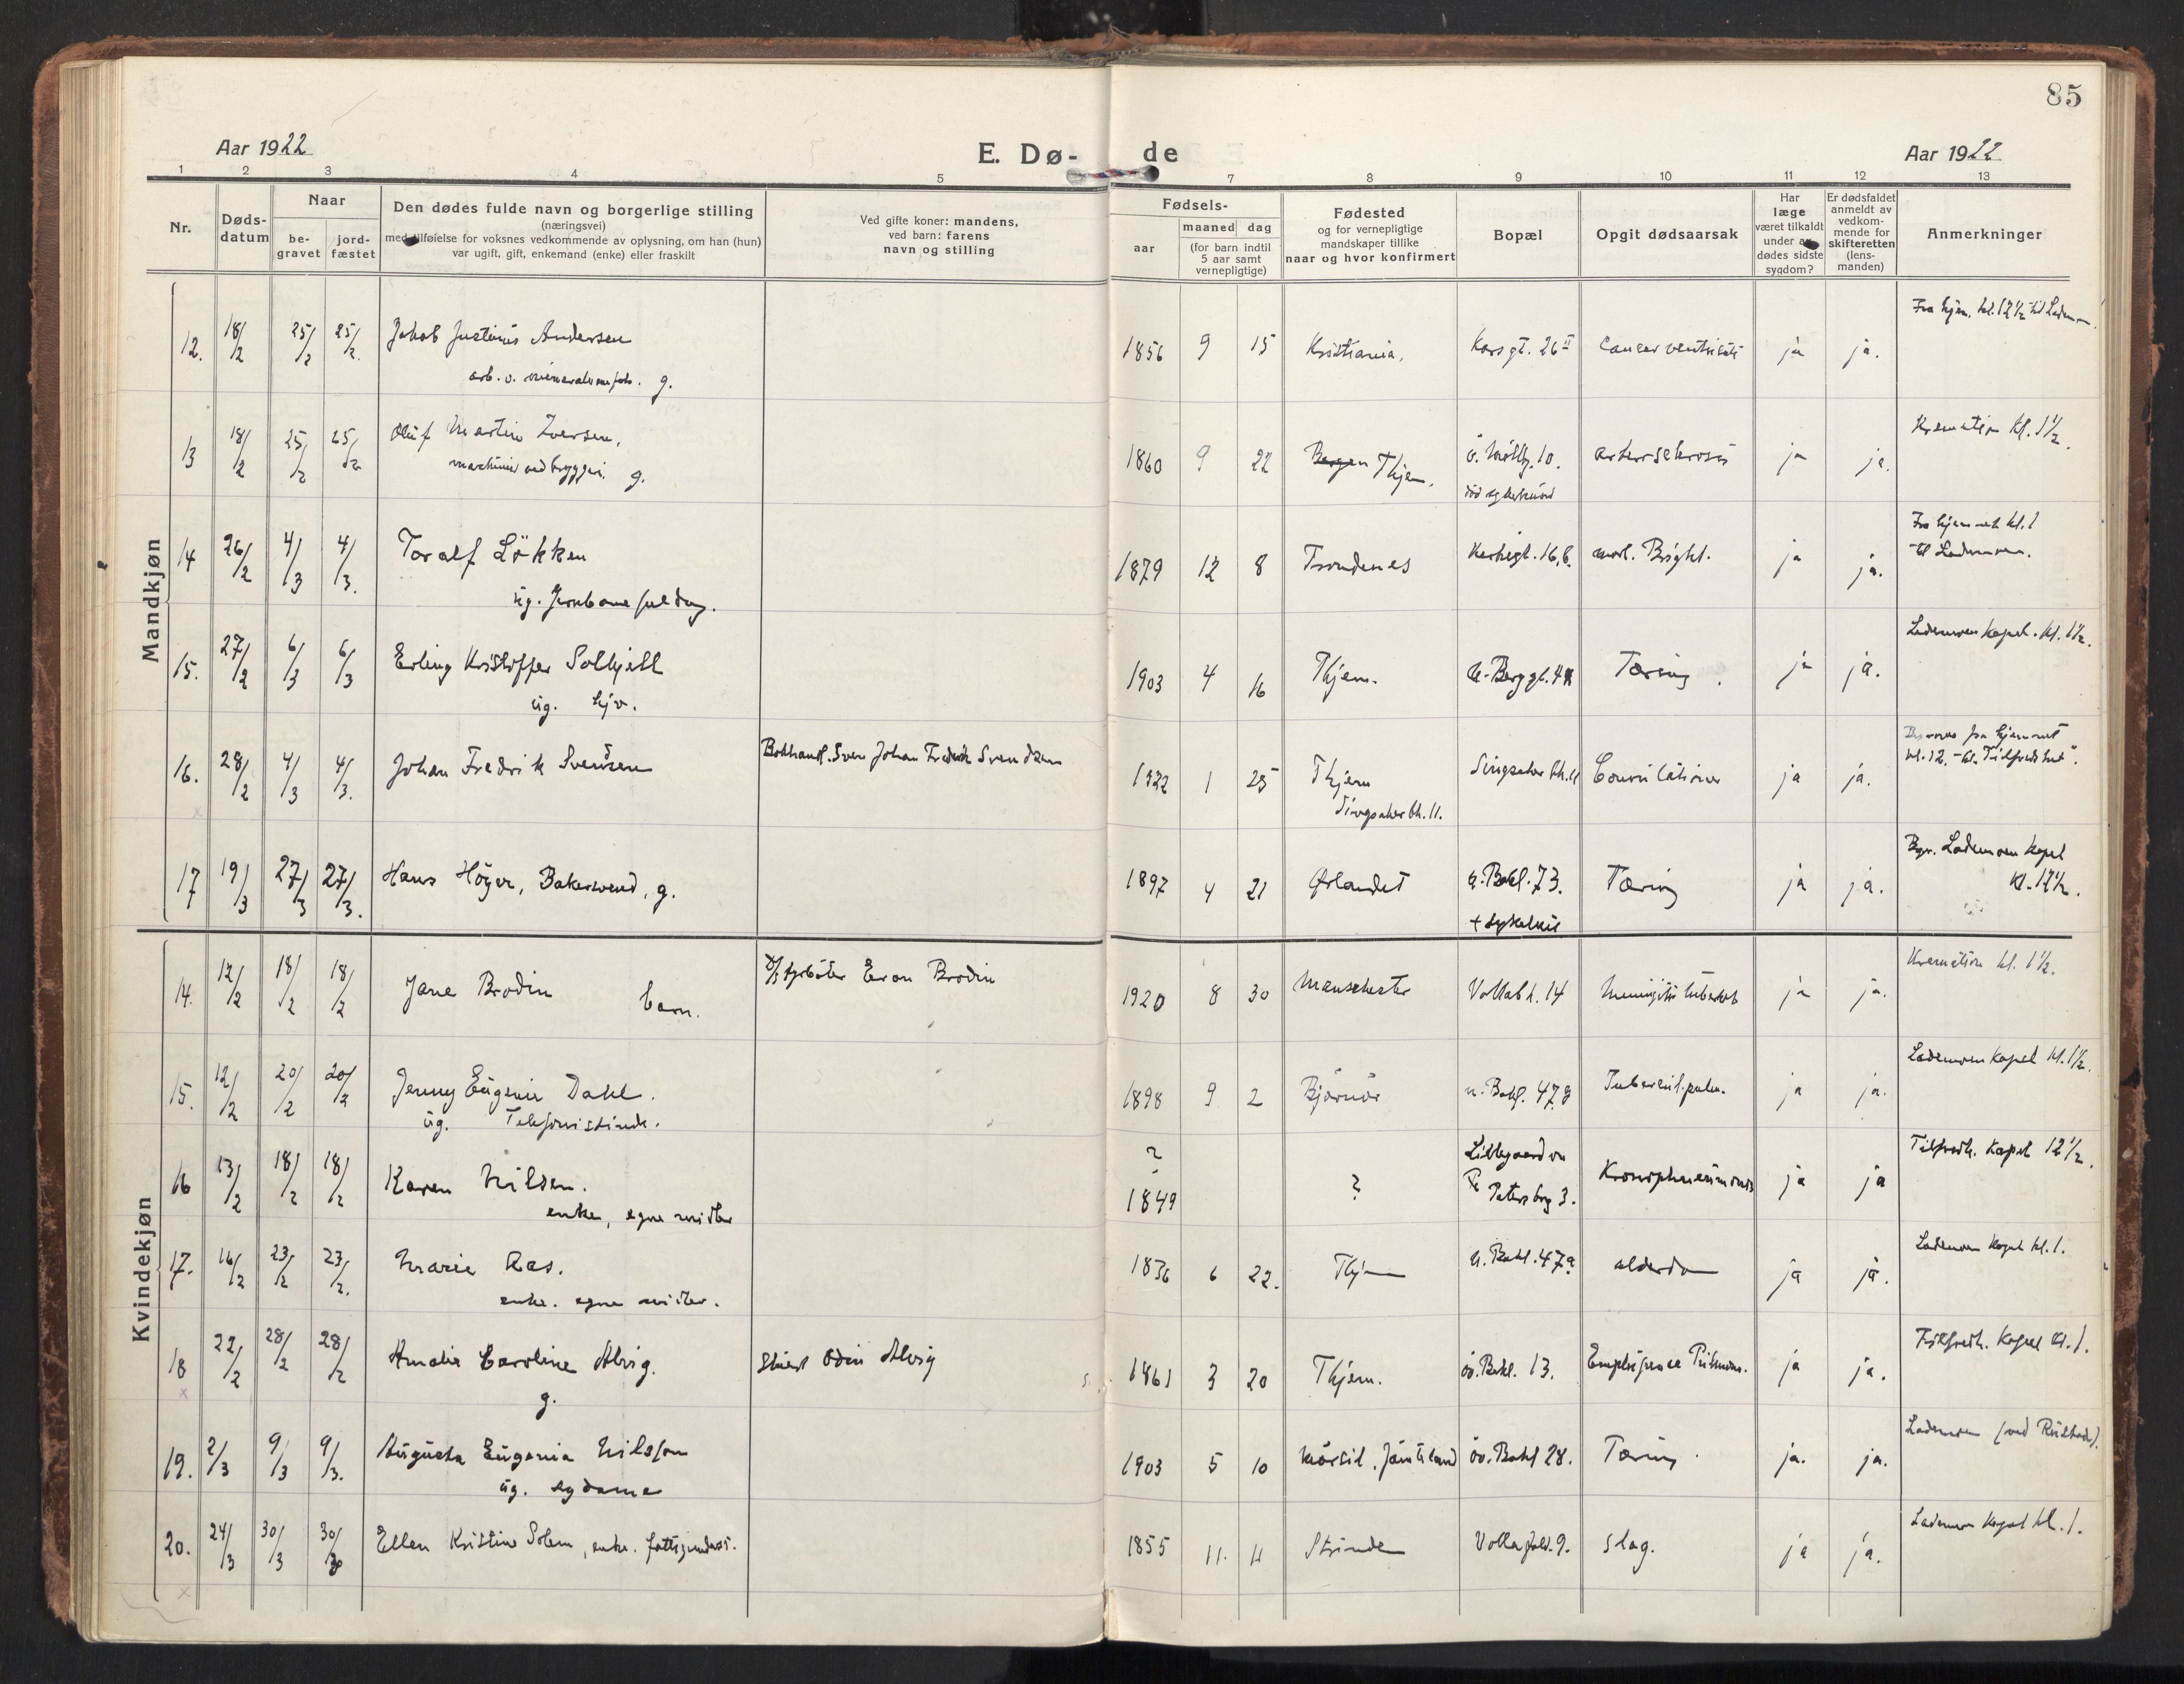 85
Aar 1922
E. Dø-
de
Aar 1922
1 2 3 4 5 7 8 9 10 11 12 13
Nr.
Døds-
datum
Naar
be-
gravet
jord-
fæstet
Den dødes fulde navn og borgerlige stilling
(næringsvei)
med tilføielse for voksnes vedkommende av oplysning, om han (hun)
var ugift, gift, enkemand (enke) eller fraskilt
Ved gifte koner: mandens,
ved barn: farens
navn og stilling
Fødsels-
aar
maaned dag
(for barn indtil
5 aar samt
vernepligtige)
Fødested
og for vernepligtige
mandskaper tillike
naar og hvor konfirmert
Bopæl
Opgit dødsaarsak
Har
læge
været tilkaldt
under av
dødes sidste
sygdom?
Er dødsfaldet
anmeldt av
vedkom-
mende for
skifteretten
(lens-
manden)
Anmerkninger
Mandkjøn
12. 18/2 25/2 25/2 Jakob Justinus Andersen 1856 9 15 Kristiania. Korsgt. 26 II Cancer ventriculi ja ja. Fra hjem. kl. 12½ til Ladem
arb. v. g.
13 18/2 25/2 25/2 Oluf Martin Iversen, 1860 9 22 Bergen Thjem. ö. Möllbg. 10. arteriosclerosis ja ja. Kremation kl. 1½.
maskinist ved bryggeri. g.
14 26/2 4/3 4/3. Toralf Lökken 1879 12 8 Trondenes Kirkegt. 16,b. morb. Bright. ja ja. Fra hjemmet kl. 1
til Lademoen.
ug. Jernbanefuldm.
15. 27/2 6/3 6/3 Erling Kristoffer Solhjell 1903 4 16 Thjem. Tæring. ja ja. Lademoen kapel. kl. 1½.
ug.
16. 28/2 4/3 4/3. Johan Fredrik Svendsen Bokhandl. Sven Johan Fredrik Svendsen 1922 1 25 Thjem Singsaker bk. 11 Convulsioner ja ja. fra hjemmet
kl. 12. til "Tilfredshet".
Singsaker bk. 11.
17 19/3 27/3 27/3. Hans Höyer, Bakersvend, g. 1897 4 21 Ørlandet n. Bakl. 73. Tæring ja ja. Bgr. Lademoen kapel
kl. 12½.
Kvindekjøn
14. 12/2 18/2 18/2 Jane Brodin barn. Eron Brodin 1920 8 30 Manschester Vollabk. 14 Meningitis tuberkul ja ja. Kremation kl. 1½.
15. 12/2 20/2 20/2 Jenny Eugenie Dahl. 1898 9 2 Björnör n. Bakl. 47 Tubercul. pulm. ja ja. Lademoen kapel kl. 1½.
ug. Telefonistinde.
16 13/2 18/2 18/2 Karen Nilsen. ? 1849 ? Lillegaardsv
Petersborg 3. ja ja Tilfredh. kapel 12½.
enke, egne midler
17. 16/2 23/2 23/2. Marie Aas. 1836 6 22. Thjem n. Bakl. 47a alderdom ja ja. Lademoen kapel kl. 1.
enke. egne midler.
18 22/2 28/2 28/2 Amalie Caroline Alvig. Odin Alvig 1861 3 20 Thjem. öv. Bakl. 13. ja ja. Tilfredh. kapel kl. 1.
g.
19. 2/3 9/3 9/3. Augusta Eugenia Nilsson 1903 5 10 Mörsil. Jämtland öv. Bakl 28. Tæring. ja. ja. Lademoen
ug. sydame
20. 24/3 30/3 30/3 Ellen Kristine Solem, enke. fattigunderst. 1855 11. 11 Strinden 9. slag. ja ja. Lademoen kapel kl. 1.